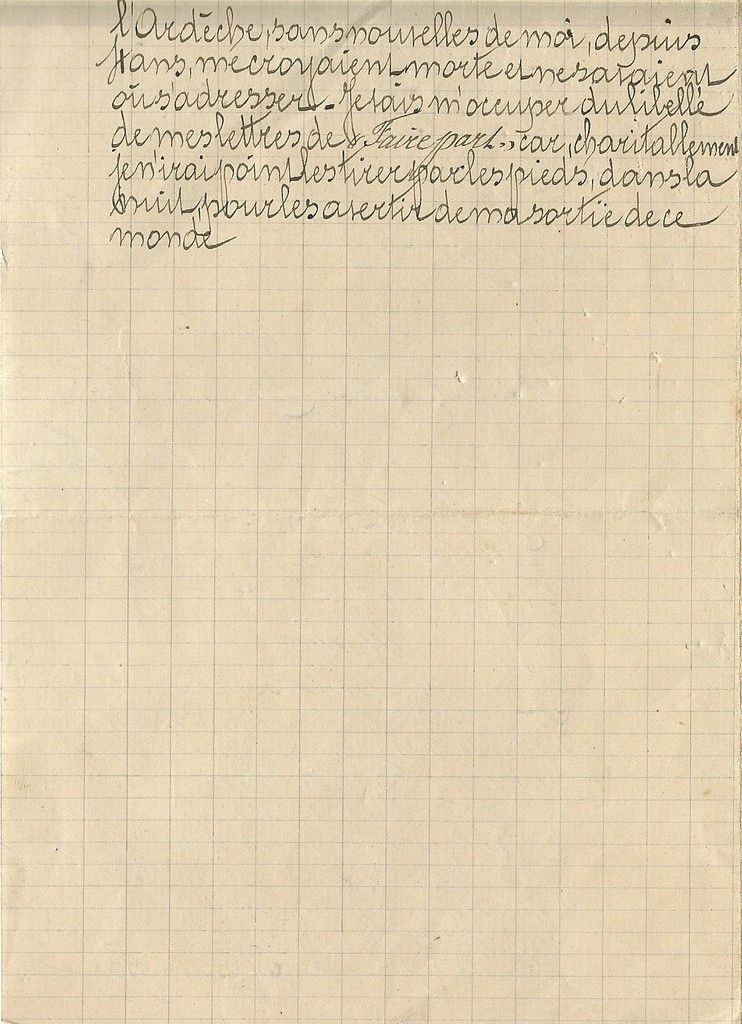 l'Ardèche, sans nouvelles de moi, depuis
4 ans, me croyaient morte et ne savaient
où s'adresser - Je vais m'occuper du libellé
de mes lettres de « Faire part » car, charitablement
je n'irai point les tirer par les pieds, dans la
nuit, pour les avertir de ma sortie de ce
monde